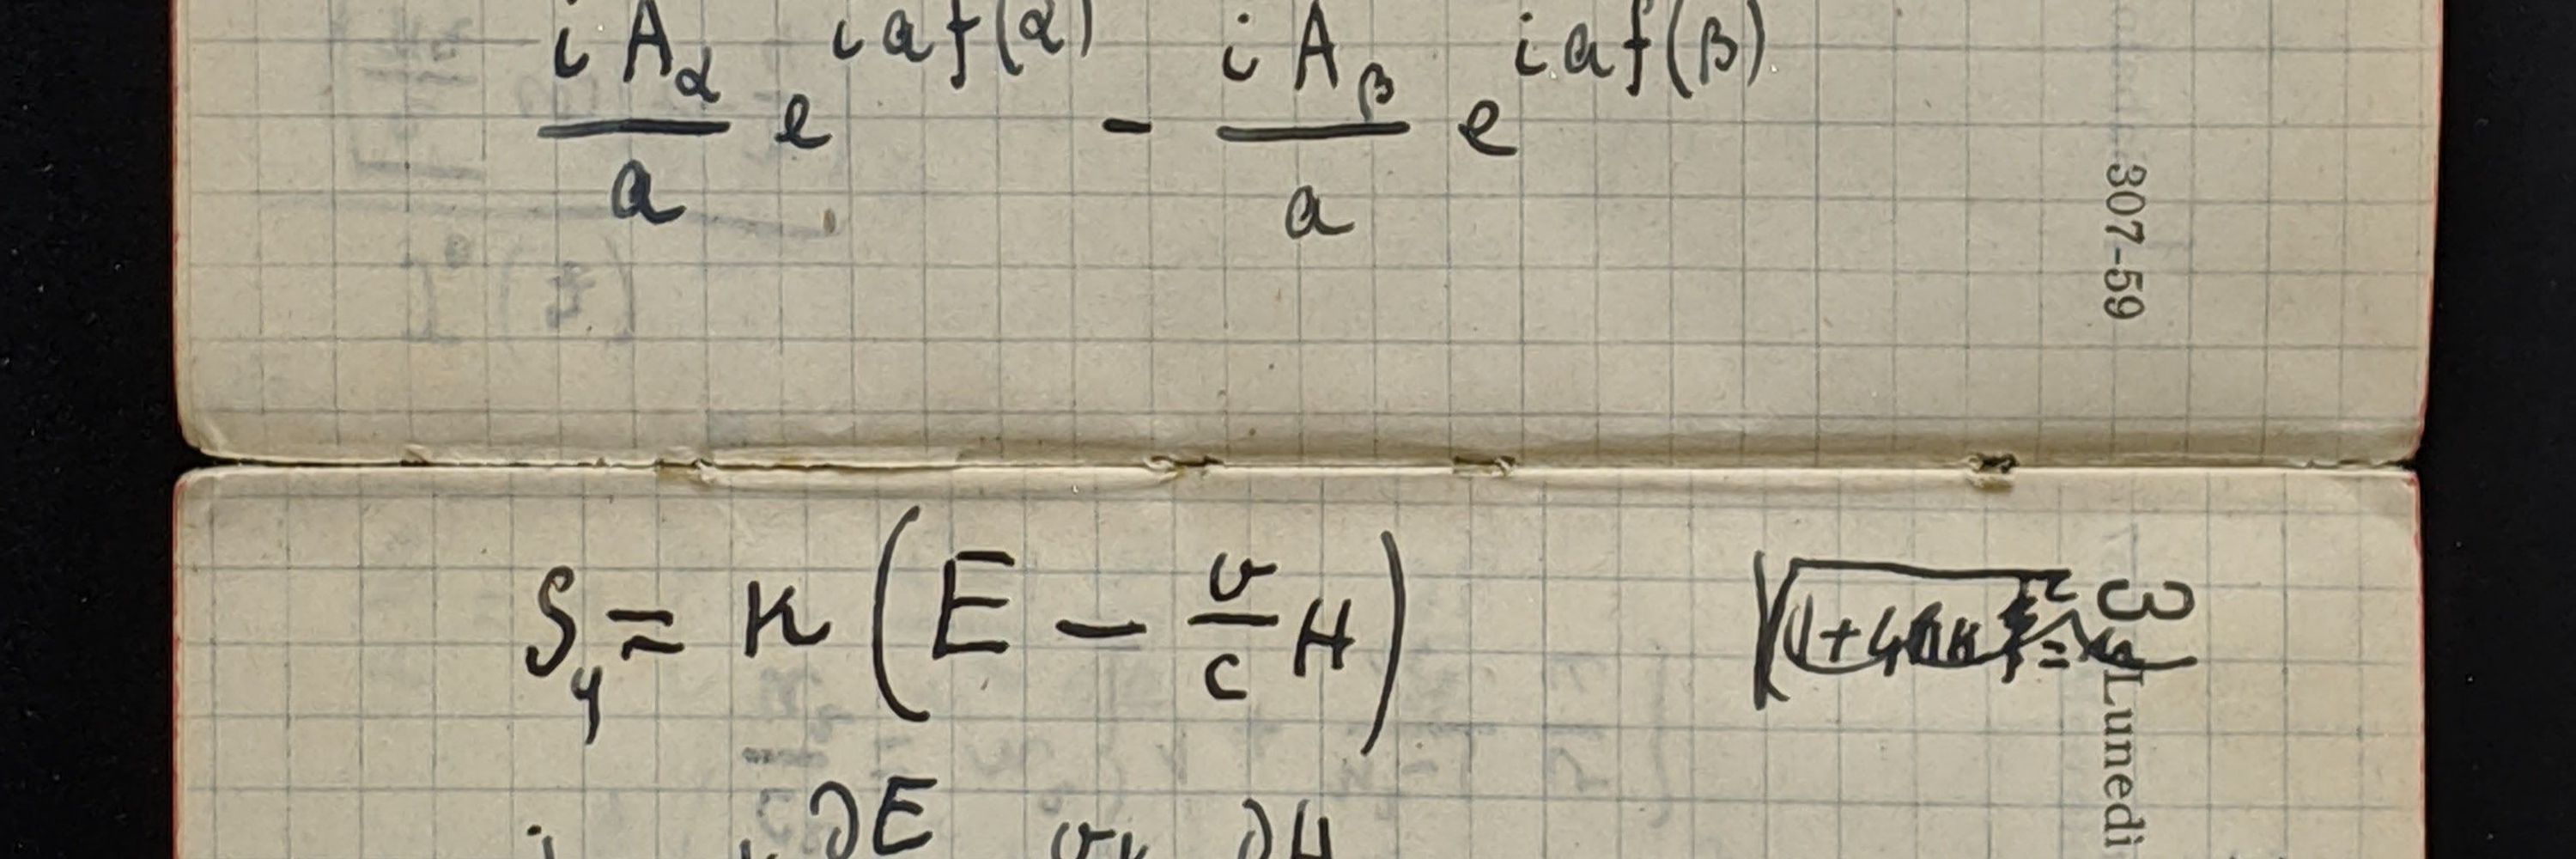 i A_α / a e^{i a f(α)} - i A_β / a e^{i a f(β)}
307-59
S_y = κ (E − v/c H)
3 Lunedì
∂E ∂H